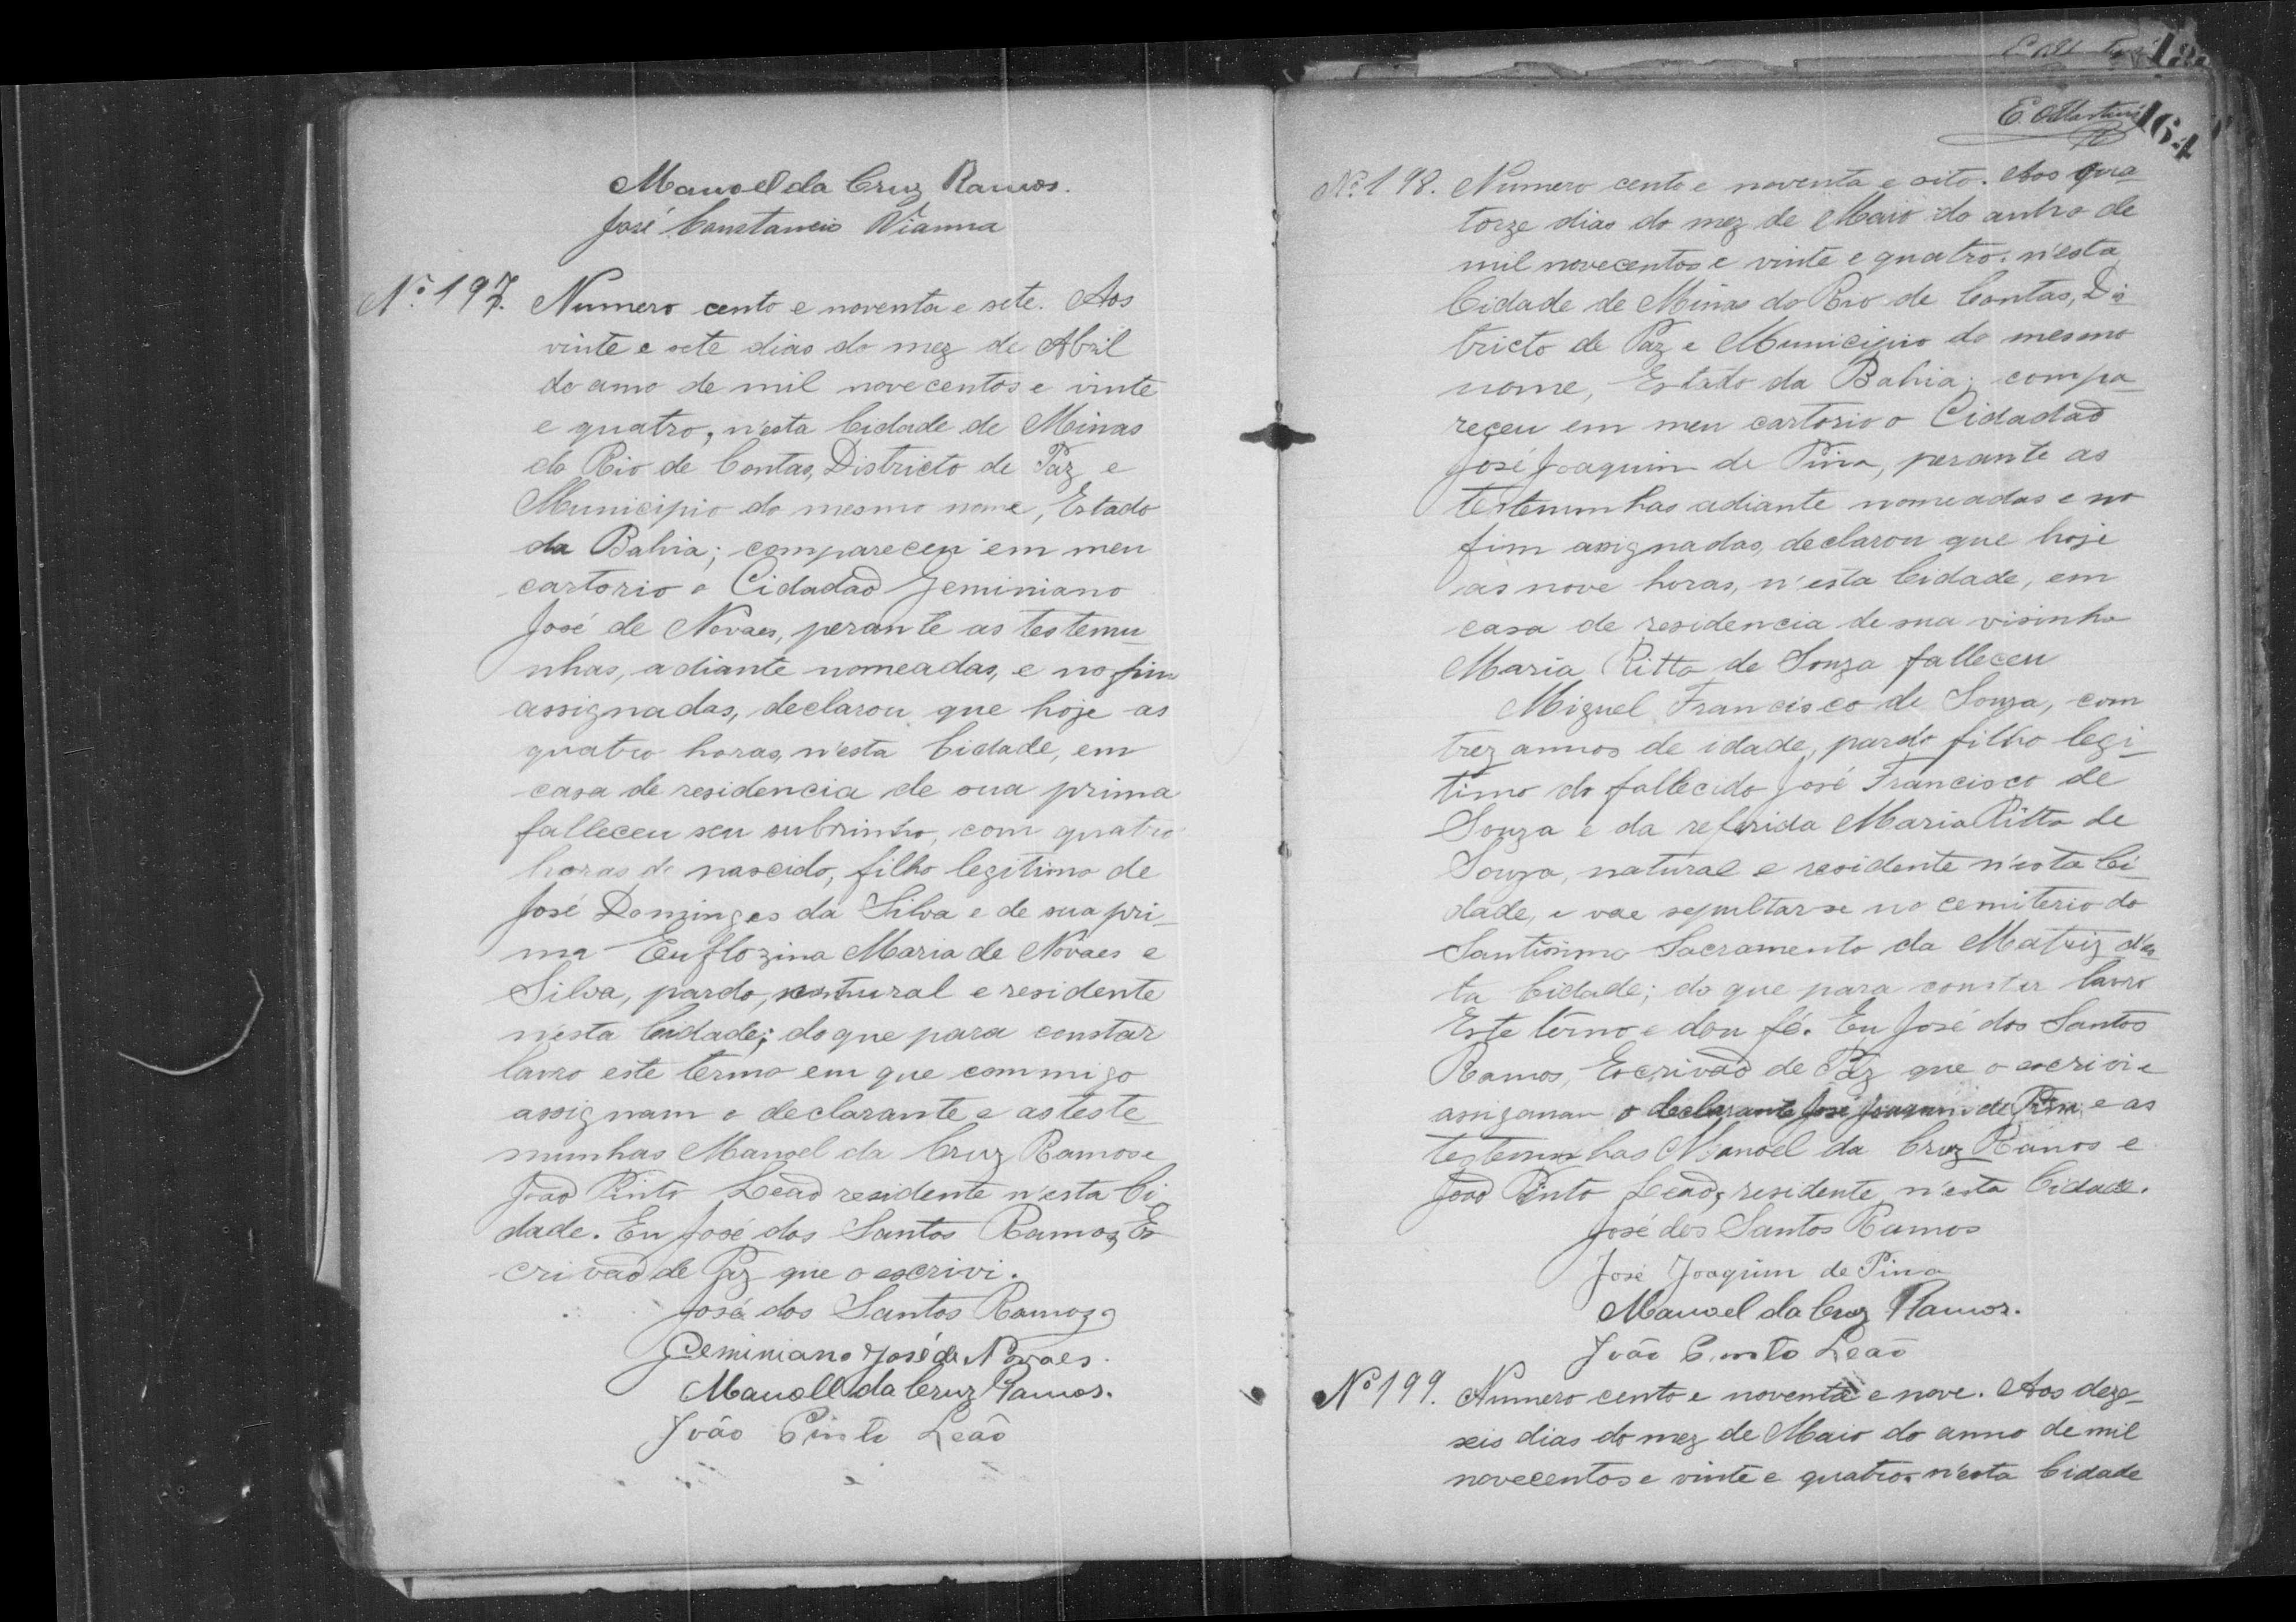 Manoel da Cruz Ramos.
José Constancio Vianna
Nº 197. Numero cento e noventa e sete. Aos
vinte e sete dias do mez de Abril
do anno de mil novecentos e vinte
e quatro, n'esta Cidade de Minas
do Rio de Contas, Districto de Paz e
Municipio do mesmo nome, Estado
da Bahia; compareceu em meu
cartorio o Cidadaõ Geminiano
José de Novaes, perante as testemu-
nhas, adiante nomeadas, e no fim
assignadas, declarou que hoje as
quatro horas, n'esta Cidade, em
casa de residencia de sua prima
falleceu seu subrinho, com quatro
horas de nascido, filho legitimo de
José Dominges da Silva e de sua pri-
ma Euflozina Maria de Novaes e
Silva, pardo, natural e residente
n'esta Cidade; do que para constar
lavro este termo em que commigo
assignam o declarante e as teste-
munhas Manoel da Cruz Ramos e
Joaõ Pinto Leaõ residente n'esta Ci-
dade. Eu José dos Santos Ramos, Es-
crivaõ de Paz que o escrivi.
José dos Santos Ramos
Geminiano José de Novaes.
Manoel da Cruz Ramos.
João Pinto Leão
E. Martins
164
Nº 198. Numero cento e noventa e oito. Aos qua-
torze dias do mez de Maio do anno de
mil novecentos e vinte e quatro, n'esta
Cidade de Minas do Rio de Contas, Dis-
tricto de Paz e Municipio do mesmo
nome, Estado da Bahia; compa-
receu em meu cartorio o Cidadaõ
José Joaquim de Pina, perante as
testemunhas adiante nomeadas e no
fim assignadas, declarou que hoje
as nove horas, n'esta Cidade, em
casa de residencia de sua visinha
Maria Ritta de Souza falleceu
Miguel Francisco de Souza, com
trez annos de idade, pardo filho legi-
timo do fallecido José Francisco de
Souza e da referida Maria Ritta de
Souza, natural e residente n'esta Ci-
dade, e vae sepultar-se no cemiterio do
Santissimo Sacramento da Matriz d'es-
ta Cidade; do que para constar lavro
Este termo e dou fé. Eu José dos Santos
Ramos, Escrivaõ de Paz que o escrivi e
assignam o declarante José Joaquim de Pina, e as
testemunhas Manoel da Cruz Ramos e
Joaõ Pinto Leaõ, residente n'esta Cidade.
José dos Santos Ramos
José Joaquim de Pina
Manoel da Cruz Ramos.
João Pinto Leão
Nº 199. Numero cento e noventa e nove. Aos deze-
seis dias do mez de Maio do anno de mil
novecentos e vinte e quatro, n'esta Cidade